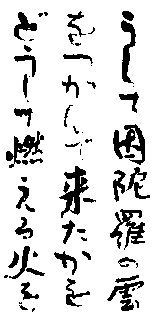 うして因陀羅の雲
をつかんで来たかを
どうして燃える火を